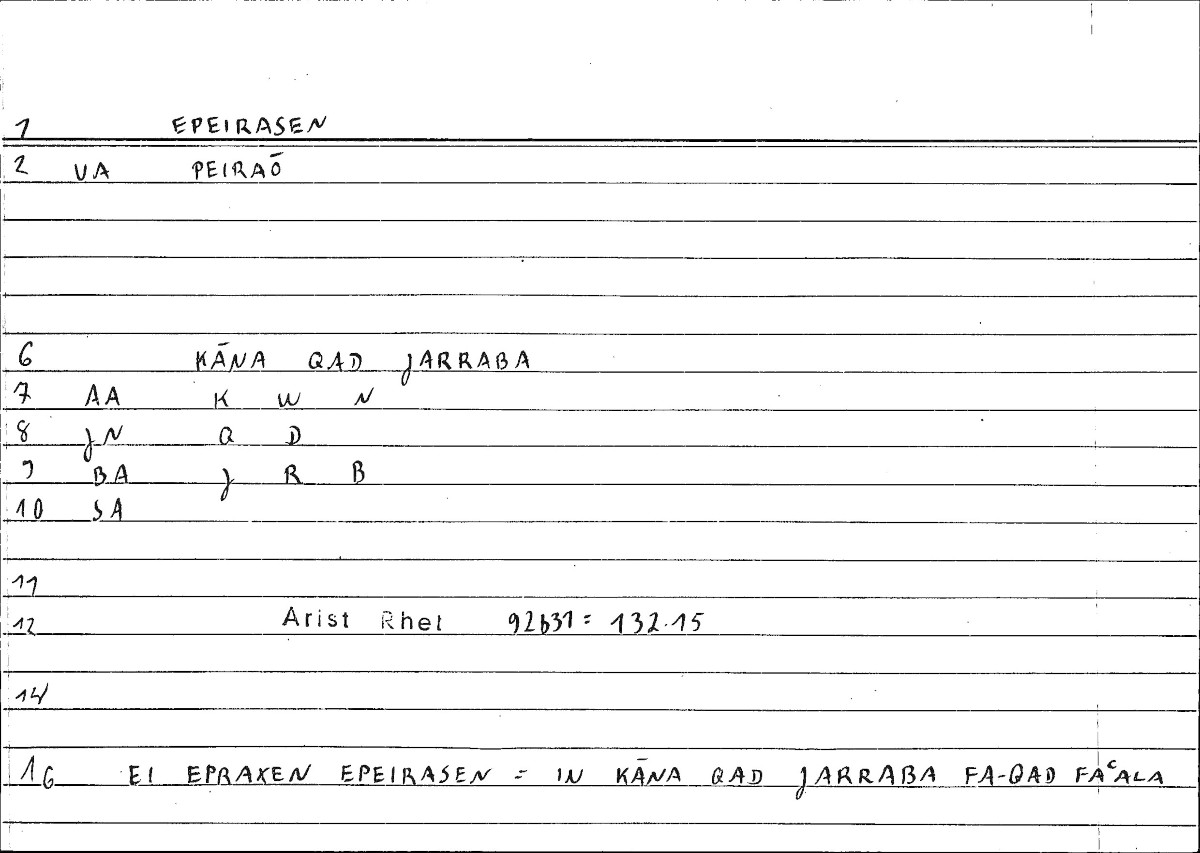 1 EPEIRASEN
2 VA PEIRAŌ
6 KĀNA QAD JARRABA
7 AA K W N
8 JN Q D
9 BA J R B
10 SA
11
12 Arist Rhet 92b31 = 132.15
14
16 EI EPRAXEN EPEIRASEN = IN KĀNA QAD JARRABA FA-QAD FAᶜALA